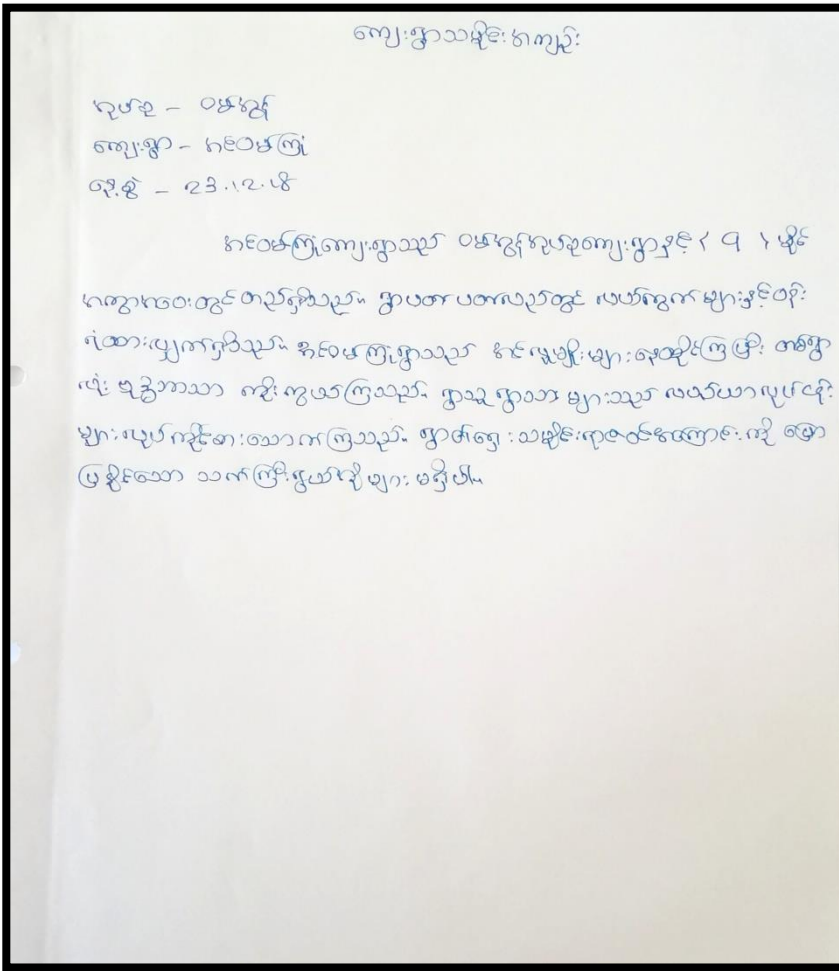 ကျေးရွာသမိုင်းအကျဉ်း
အုပ်စု - ဝမ်အွန်
ကျေးရွာ - အင်ဝမ်ကြုံ
နေ့စွဲ - 23.12.18
အင်ဝမ်ကြုံကျေးရွာသည် ဝမ်အွန်အုပ်စုကျေးရွာနှင့် ( ၎ ) မိုင်
အကွာအဝေးတွင်တည်ရှိသည်။ ရွာပတ်ပတ်လည်တွင် လယ်ကွက်များနှင့်ဝန်း
ရံထားလျှက်ရှိသည်။ အင်ဝမ်ကြုံရွာသည် အင်းလူမျိုးများနေထိုင်ကြပြီး တစ်ရွာ
လုံး ဗုဒ္ဓဘာသာ ကိုးကွယ်ကြသည်။ ရွာသူရွာသားများသည် လယ်ယာလုပ်ငန်း
များလုပ်ကိုင်စားသောက်ကြသည်။ ရွာ၏ရှေးသမိုင်းရာဇဝင်အကြောင်းကို ပြော
ပြနိုင်သော သက်ကြီးရွယ်အိုများ မရှိပါ။